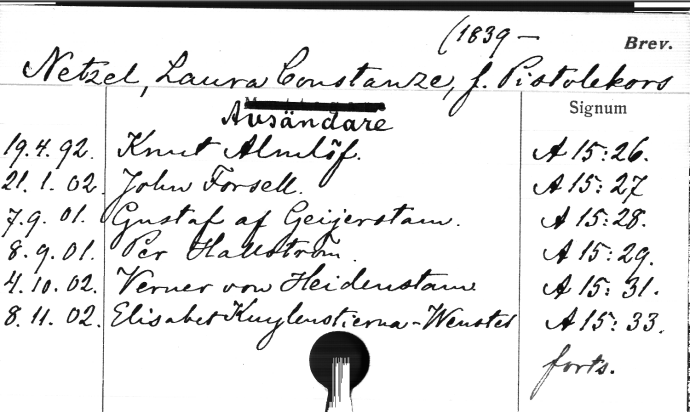 (1839 – Brev.
Netzel, Laura Constanze, f. Pistolekors
Signum
Avsändare
19.4.92. Knut Almlöf. A 15:26.
21.1.02. John Forsell. A 15:27
7.9.01. Gustaf af Geijerstam. A 15:28.
8.9.01. Per Hallström. A 15:29.
4.10.02. Verner von Heidenstam A 15:31.
8.11.02. Elisabet Kuylenstierna-Wenster A 15:33.
forts.